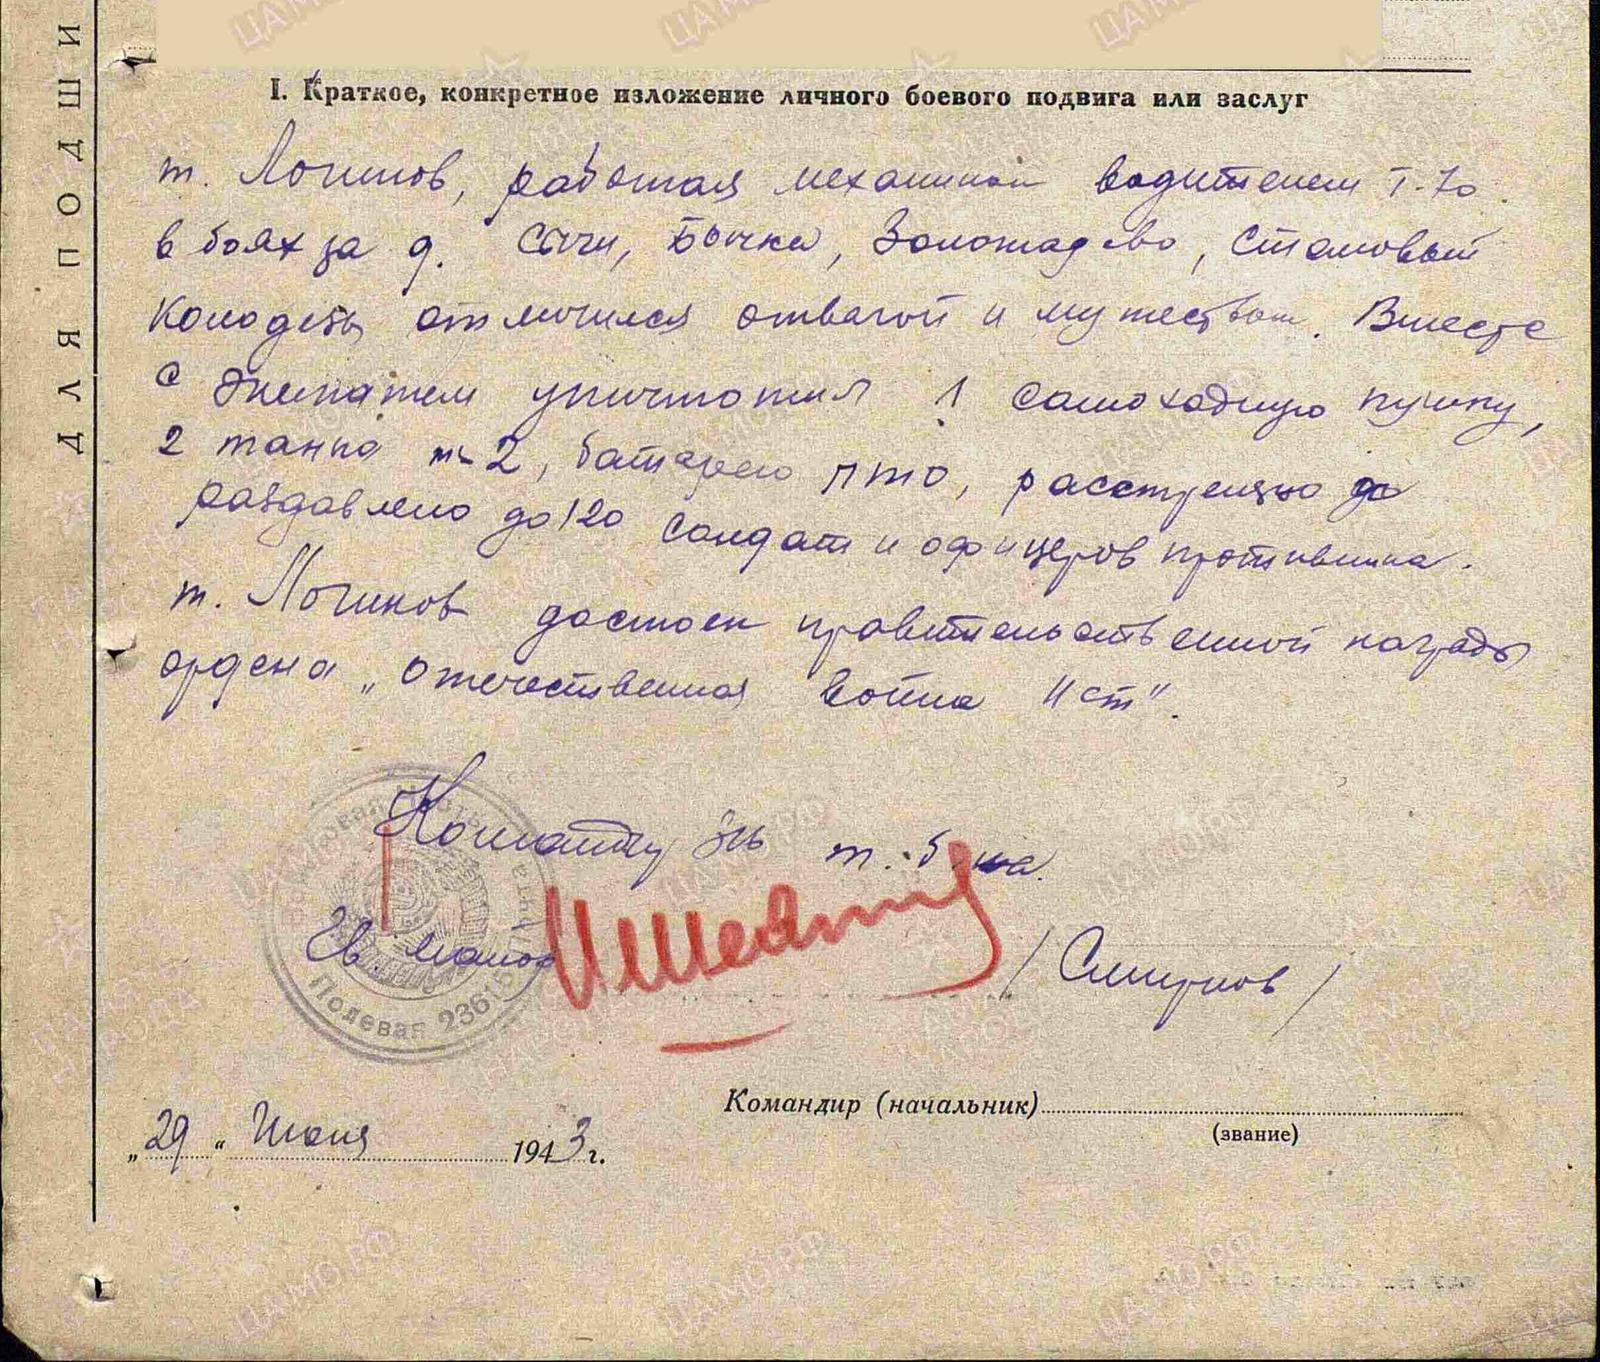 ДЛЯ ПОДШИ
I. Краткое, конкретное изложение личного боевого подвига или заслуг
т. Логинов, работая механиком водителем Т-70
в боях за д. Сычи, Бычки, Золотадево, Становый
Колодезь отличился отвагой и мужеством. Вместе
с экипажем уничтожил 1 самоходную пушку,
2 танка т-2, батарею ПТО, расстреляно до
раздавлено до 120 солдат и офицеров противника.
т. Логинов достоен правительственной награды
ордена „Отечественная война II ст".
Командир т. б-на.
Гв. майор /Смирнов/
Полевая 23615
Командир (начальник)
(звание)
„29" Июля 1943 г.